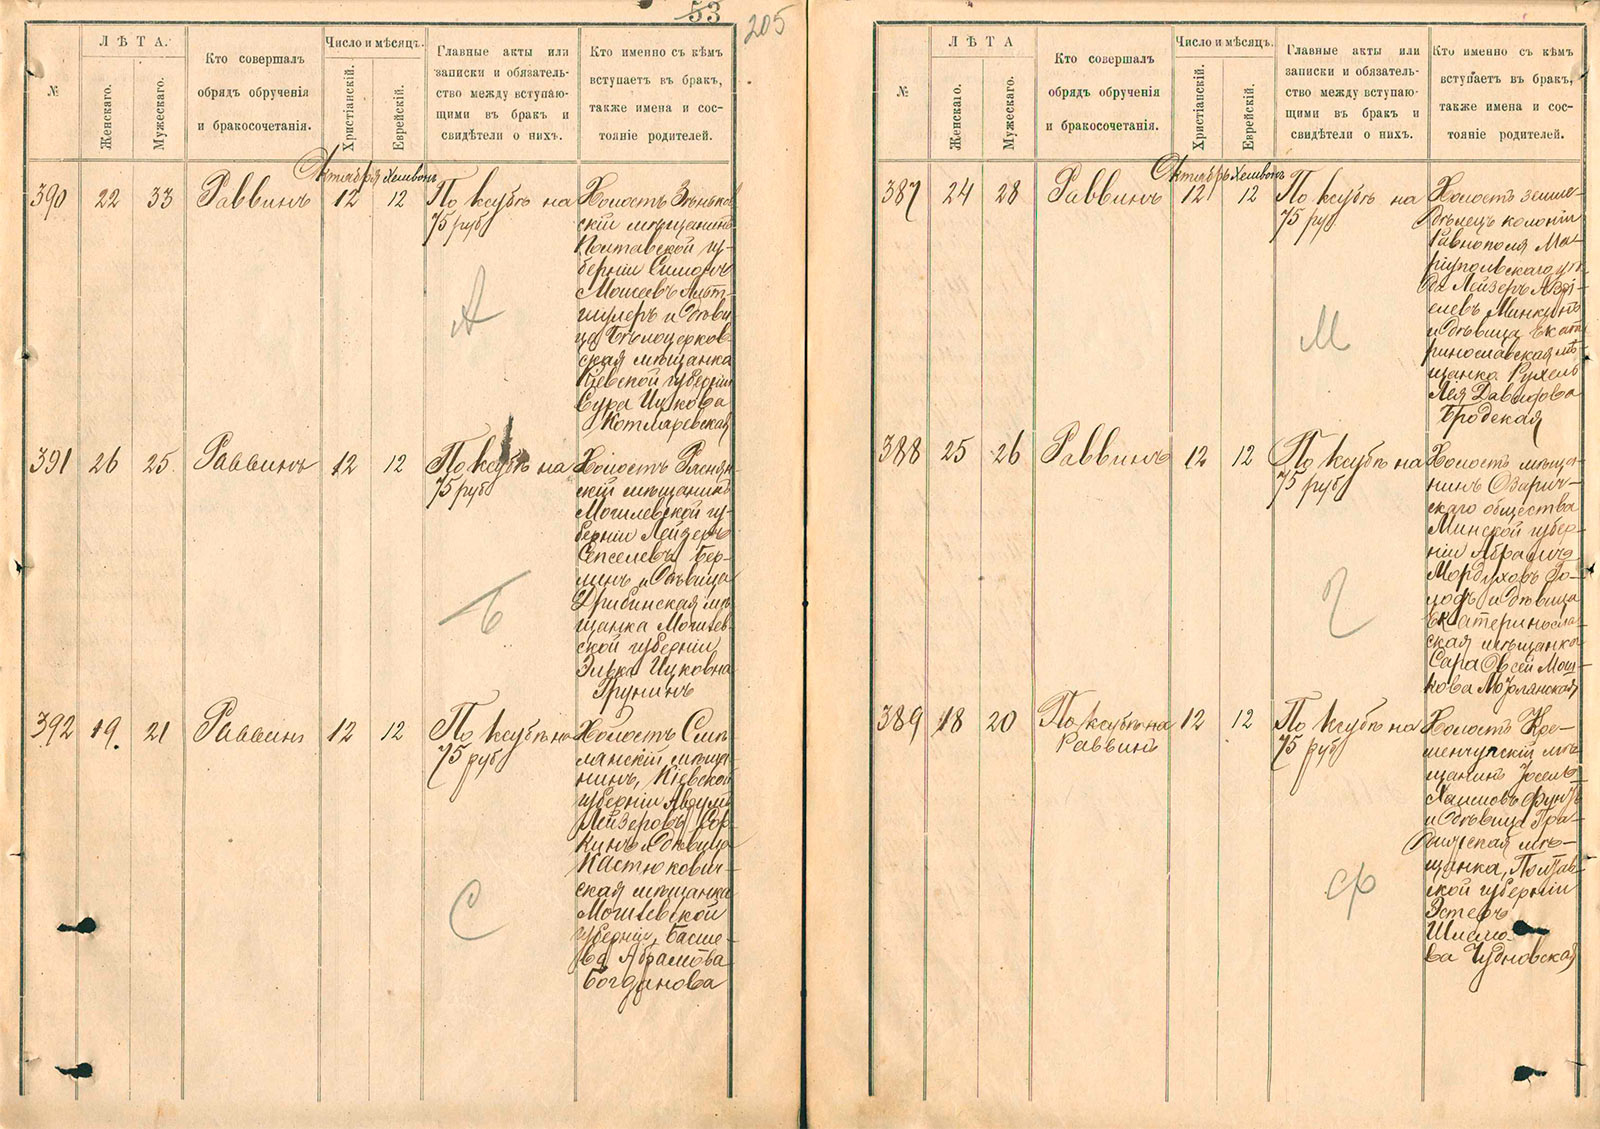 53
205
№
ЛѢТА.
Женскаго.
Мужескаго.
Кто совершалъ
обрядъ обрученія
и бракосочетанія.
Число и мѣсяцъ.
Христіанскій.
Еврейскій.
Главные акты или
записки и обязатель-
ство между вступаю-
щими въ бракъ и
свидѣтели о нихъ.
Кто именно съ кѣмъ
вступаетъ въ бракъ,
также имена и сос-
тояніе родителей.
Октября Хешвонъ
390 22 33 Раввинъ 12 12
По ксубѣ на
75 руб
А
Холостъ Зѣньков
скій мѣщанинъ
Полтавской гу-
берніи Симонъ
Мошеевъ Альт-
шулеръ и дѣви
ца Бѣлоцерков-
ская мѣщанка
Кіевской губерніи
Сура Ицкова
Котляревская
391 26 25 Раввинъ 12 12
По ксубѣ на
75 руб
Б
Холостъ
скій мѣщанинъ
Могилевской гу-
берніи Лейзеръ
Сепселевъ Бер-
линъ и дѣвица
Дрибинская мѣ
щанка Могилев-
ской губерніи
Элька Ицковна
Грунинъ
392 19. 21 Раввинъ 12 12
По ксубѣ на
75 руб
С
Холостъ Смѣ-
лянскій мѣща-
нинъ, Кіевской
губерніи
Лейзеровъ Сор-
кинъ и дѣвица
Кастюкович-
ская мѣщанка
Могилевской
губерніи, Басше-
ва Абрамова
Богданова
№
ЛѢТА
Женскаго.
Мужескаго.
Кто совершалъ
обрядъ обрученія
и бракосочетанія.
Число и мѣсяцъ.
Христіанскій.
Еврейскій.
Главные акты или
записки и обязатель-
ство между вступаю-
щими въ бракъ и
свидѣтели о нихъ.
Кто именно съ кѣмъ
вступаетъ въ бракъ,
также имена и сос-
тояніе родителей.
Октябръ Хешвонъ
387 24 28 Раввинъ 12 12
По ксубѣ на
75 руб
М
Холостъ земле-
дѣлецъ колоніи
Равнополя Ма-
ріупольскаго уѣз
да Лейзеръ Азрі-
елевъ Минкинъ
и дѣвица Екате
ринославская мѣ-
щанка Рухель
Лея Давидова
Бродская
388 25 26 Раввинъ 12 12
По ксубѣ на
75 руб
Г
Холостъ мѣща-
нинъ Озарич-
скаго общества
Минской губер-
ніи Абрамъ
Мордуховъ Го-
лодъ и дѣвица
Екатеринослав
ская мѣщанка
Сара Мош-
кова
389 18 20 По ксубѣ на 12 12
Раввинъ
По ксубѣ на
75 руб
Ф
Холостъ Кре-
менчугскій мѣ
щанинъ Іосель
Хаимовъ Фунтъ
и дѣвица Гра-
дижская мѣ-
щанка, Полтав-
ской губерніи
Эстеръ
Шлемо-
ва Чудновская